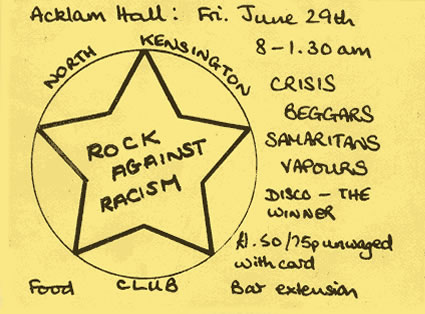 Acklam Hall: Fri. June 29th
8-1.30am
NORTH KENSINGTON
CRISIS
BEGGARS
SAMARITANS
VAPOURS
DISCO - THE
WINNER
ROCK
AGAINST
RACISM
£1.50/75p unwaged
with card
Food CLUB Bar extension